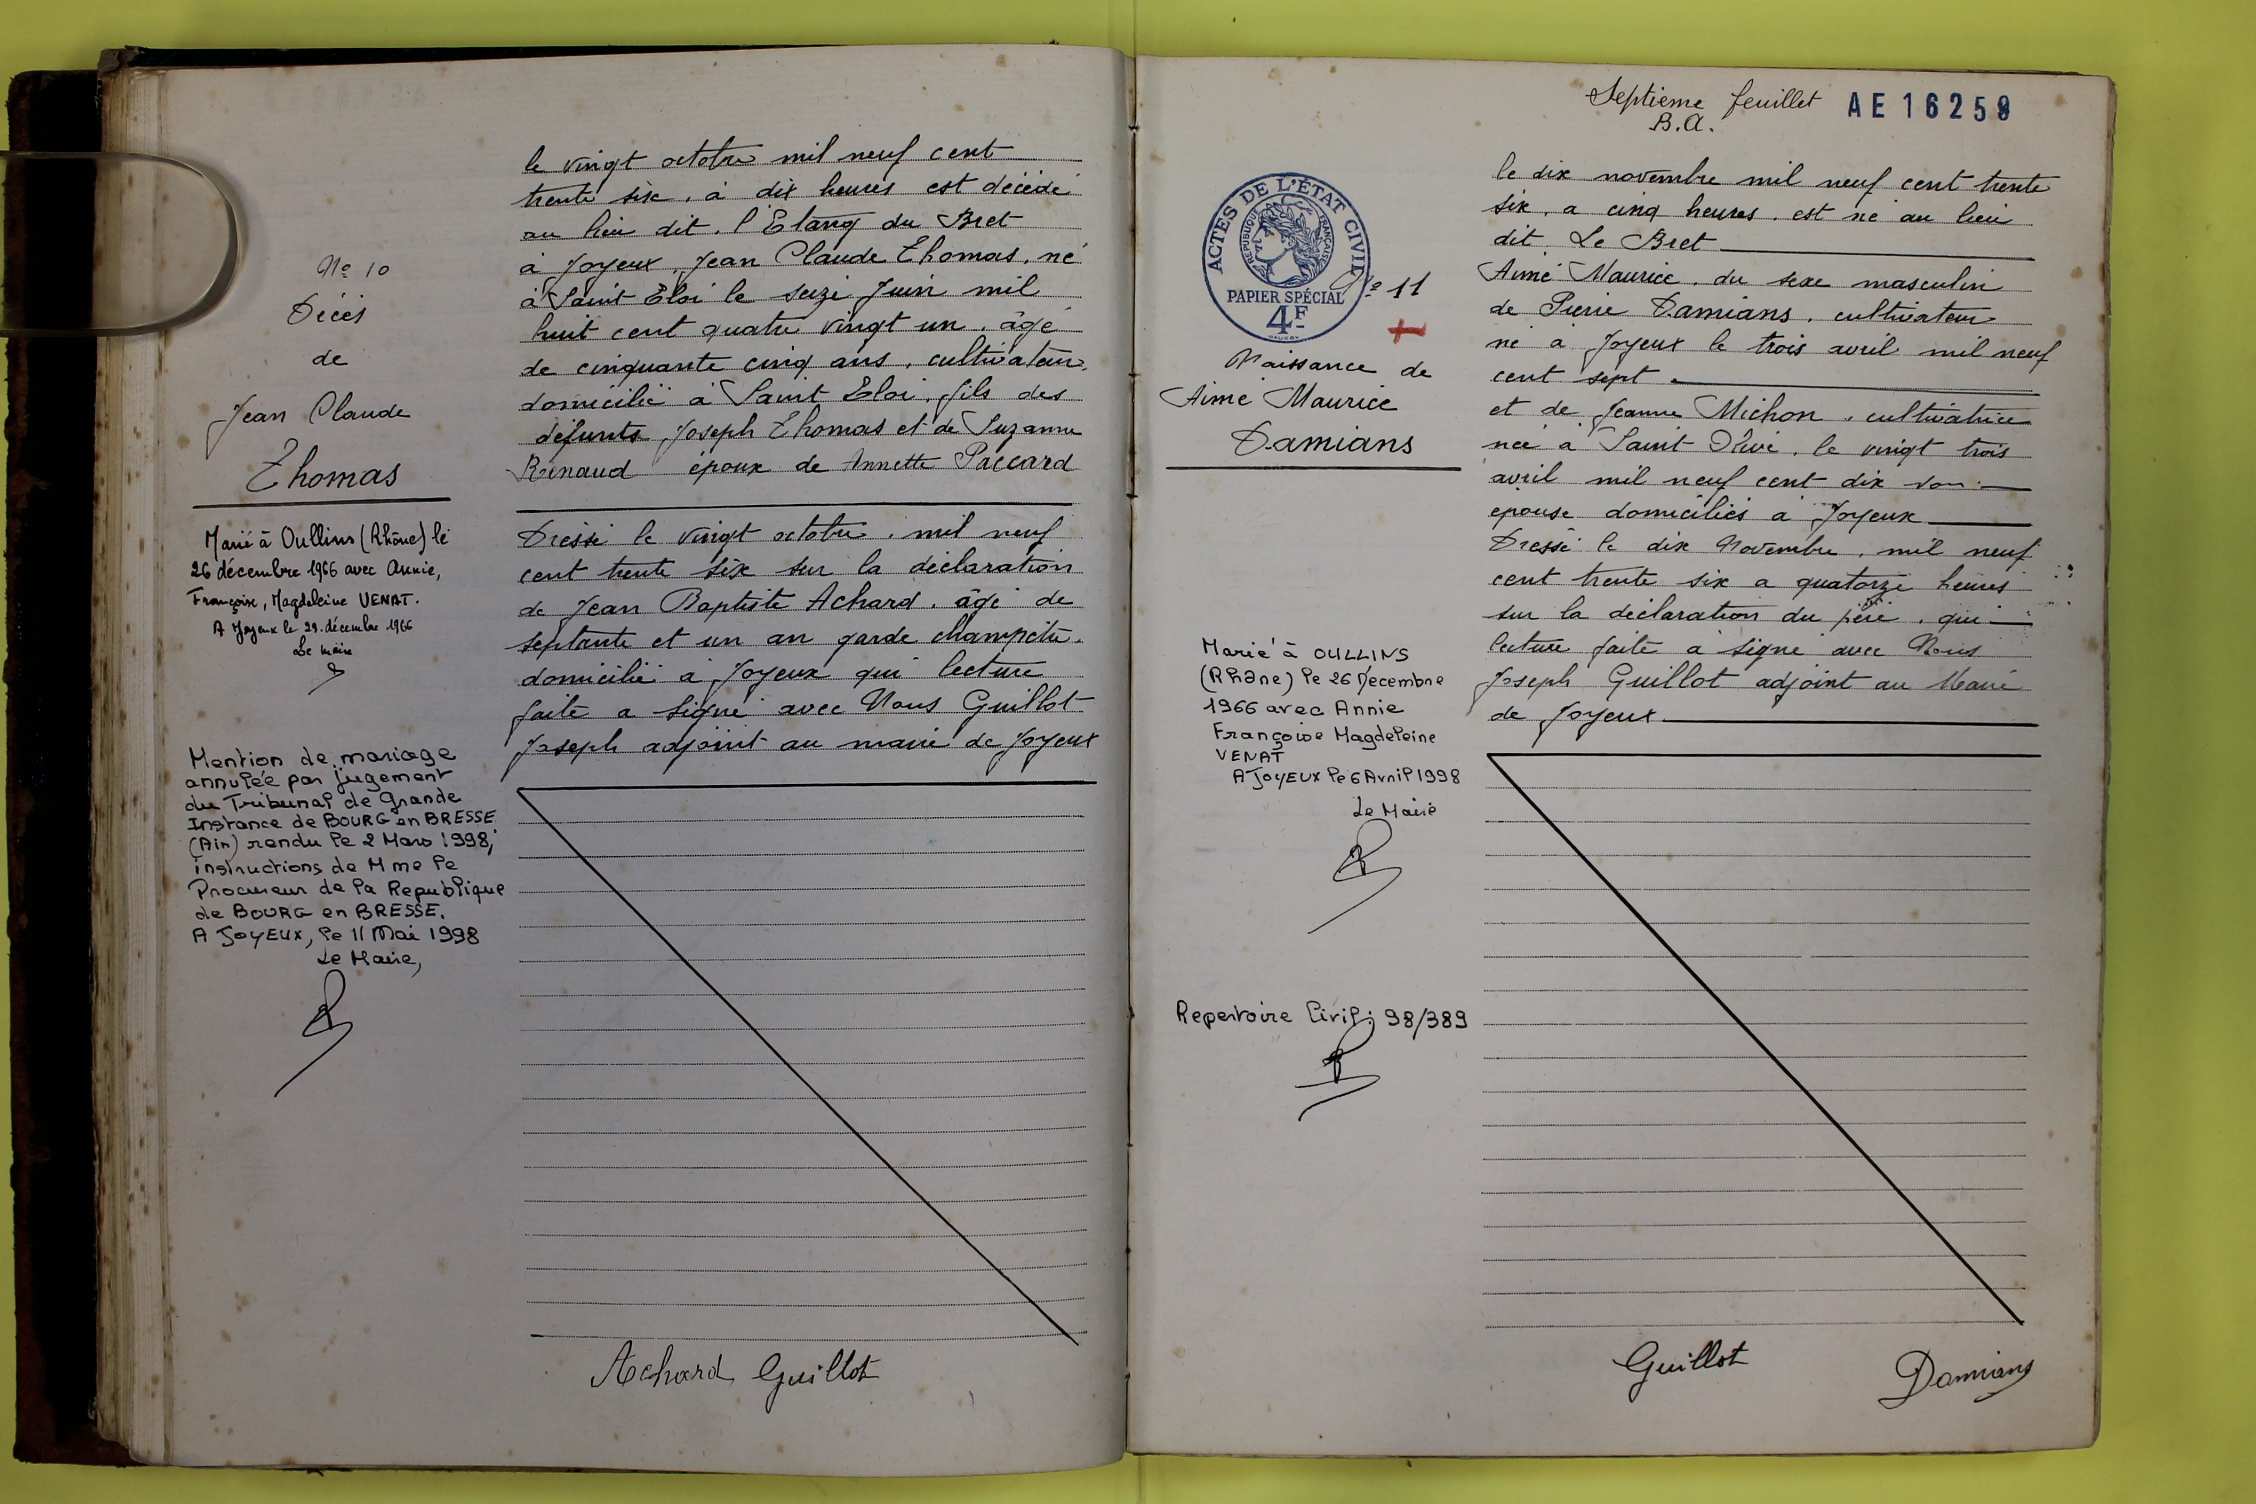 No 10
Décés
de
Jean Claude
Thomas
Marié à Oullins (Rhône) le
26 décembre 1966 avec Annie,
Françoise, Magdeleine VENAT.
A Joyeux le 29 décembre 1966
Le maire
Mention de mariage
annulée par jugement
du Tribunal de Grande
Instance de BOURG en BRESSE
(Ain) rendu le 2 Mars 1998,
instructions de Mme le
Procureur de la Republique
de BOURG en BRESSE.
A JOYEUX, le 11 Mai 1998
Le Maire,
le vingt octobre mil neuf cent
trente six. à dix heures est décédé
au lieu dit. l'Etang du Bret
à Joyeux. Jean Claude Thomas. né
à Saint Eloi le seize Juin mil
huit cent quatre vingt un. âgé
de cinquante cinq ans. cultivateur.
domicilié à Saint Eloi. fils des
défunts Joseph Thomas et de Suzanne
Renaud époux de Annette Paccard
Dressé le vingt octobre. mil neuf
cent trente six sur la déclaration
de Jean Baptiste Achard. âgé de
septante et un an garde champêtre.
domicilié à Joyeux qui lecture
faite a signé avec Nous Guillot
Joseph adjoint au maire de Joyeux
Achard Guillot
Septième feuillet AE 16259
B.A.
ACTES DE L'ÉTAT CIVIL
REPUBLIQUE FRANÇAISE
PAPIER SPÉCIAL
4F
No 11
Naissance de
Aimé Maurice
Damians
Marié à OULLINS
(Rhône) le 26 Decembre
1966 avec Annie
Françoise Magdeleine
VENAT
A JOYEUX le 6 Avril 1998
Le Maire
Repertoire Civil: 98/389
le dix novembre mil neuf cent trente
six. a cinq heures. est né au lieu
dit. Le Bret
Aimé Maurice. du sexe masculin
de Pierre Damians. cultivateur
né à Joyeux le trois avril mil neuf
cent sept.
et de Jeanne Michon. cultivatrice
née à Saint Olive. le vingt trois
avril mil neuf cent dix son
épouse domiciliés à Joyeux
Dressé le dix Novembre. mil neuf
cent trente six a quatorze heures
sur la déclaration du père. qui
lecture faite a signé avec Nous
Joseph Guillot adjoint au Maire
de Joyeux
Guillot Damians